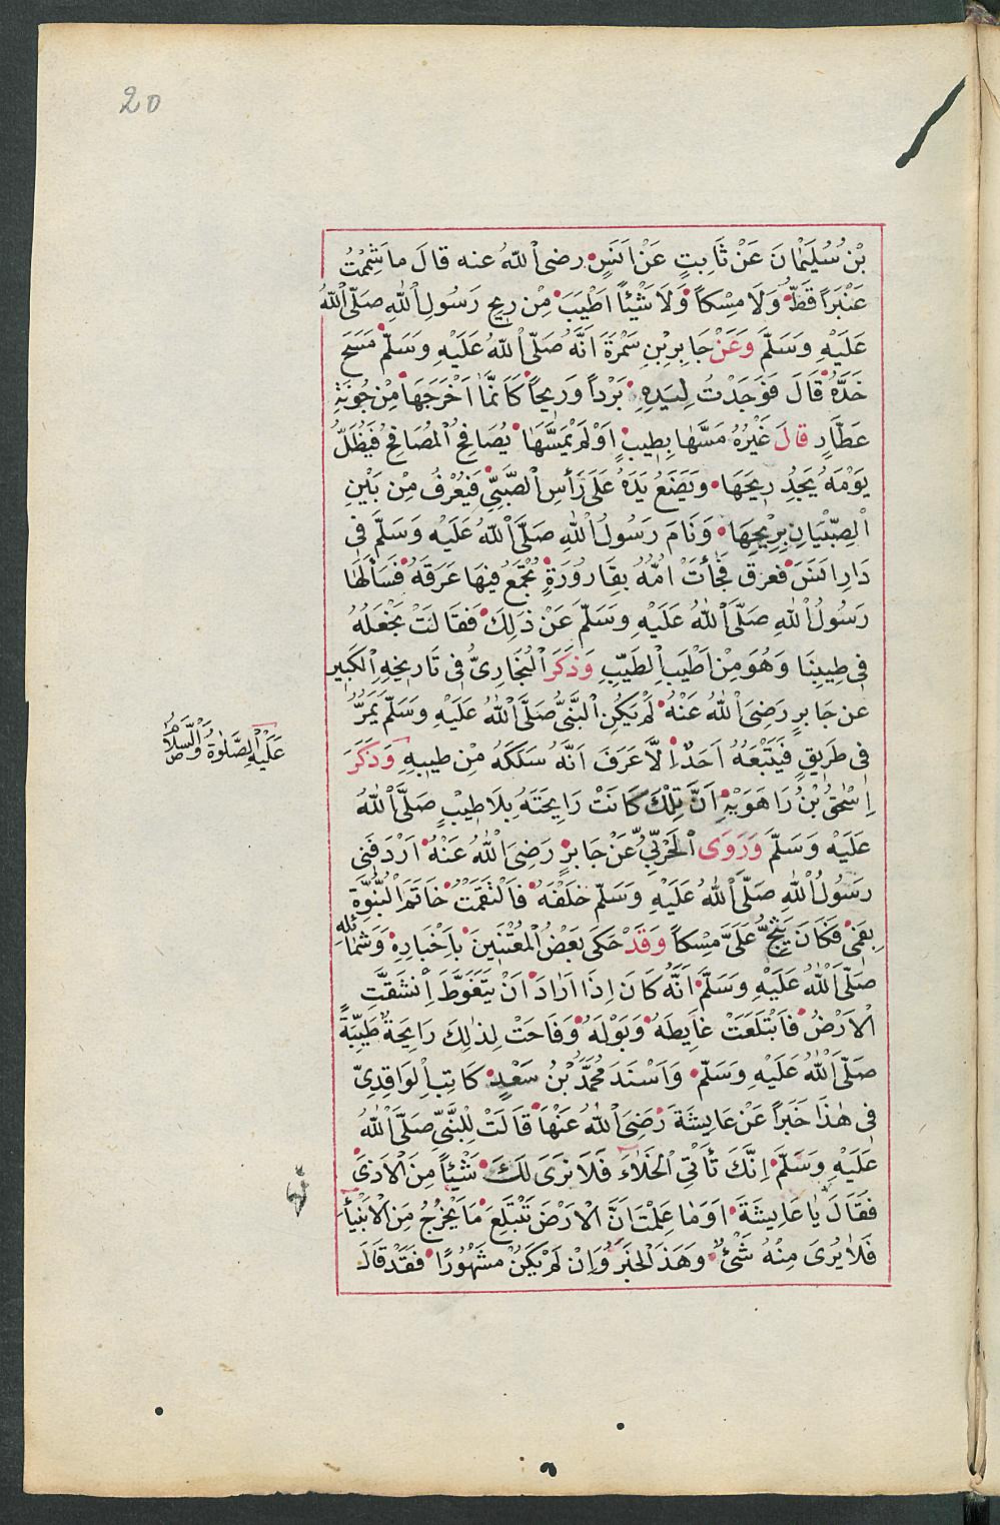 20
بْنُ سُلَيْمَانَ عَنْ ثَابِتٍ عَنْ اَنَسٍ رضى اللهُ عنه قالَ ما شَمِمْتُ
عَنْبَرًا قَطُّ وَلَا مِسْكاً وَلَا شَيْئاً اَطْيَبَ مِنْ رِيحِ رَسُولِ اللهِ صَلَّى اللهُ
عَلَيْهِ وَسَلَّمَ وَعَنْ جَابِرِ بْنِ سَمُرَةَ اَنَّهُ صَلَّى اللهُ عَلَيْهِ وَسَلَّمَ مَسَحَ
خَدَّهُ قَالَ فَوَجَدْتُ لِيَدِهِ بَرْداً وَرِيحاً كَاَنَّمَا اَخْرَجَهَا مِنْ جُونَةِ
عَطَّارٍ قَالَ غَيْرُهُ مَسَّهَا بِطِيبٍ اَوْ لَمْ يَمَسَّهَا يُصَافِحُ الْمُصَافِحُ فَيَظَلُّ
يَوْمَهُ يَجِدُ رِيحَهَا وَيَضَعُ يَدَهُ عَلَى رَأْسِ الصَّبِىِّ فَيُعْرَفُ مِنْ بَيْنِ
الصِّبْيَانِ بِرِيْحِهَا وَنَامَ رَسُولُ اللهِ صَلَّى اللهُ عَلَيْهِ وَسَلَّمَ فى
دَارِ اَنَسٍ فعرق فَجَأَتْ اُمُّهُ بِقَارُورَةٍ تَجْمَعُ فِيهَا عَرَقَهُ فَسَأَلَهَا
رَسُولُ اللهِ صَلَّى اللهُ عَلَيْهِ وَسَلَّمَ عَنْ ذَلِكَ فَقَالَتْ نَجْعَلُهُ
فِى طِيبِنَا وَهُوَ مِنْ اَطْيَبِ الطِّيبِ وَذَكَرَ الْبُخَارِىُّ فِى تَارِيخِهِ الْكَبِيرِ
عَنْ جَابِرٍ رَضِىَ اللهُ عَنْهُ لَمْ يَكُنِ النَّبِىُّ صَلَّى اللهُ عَلَيْهِ وَسَلَّمَ يَمُرُّ
فى طَرِيقٍ فَيَتْبَعُهُ اَحَدٌ اِلَّا عَرَفَ اَنَّهُ سَلَكَهُ مِنْ طِيبِهِ وَذَكَرَ
عَلَيْهِ الصَّلٰوةُ وَالسَّلَامُ
اِسْحٰقُ بْنُ رَاهَوَيْهِ اَنَّ تِلْكَ كَانَتْ رَايِحَتَهُ بِلَا طِيْبٍ صَلَّى اللهُ
عَلَيْهِ وَسَلَّمَ وَرَوَى الْحَرْبِىُّ عَنْ جَابِرٍ رَضِىَ اللهُ عَنْهُ اَرْدَفَنِى
رَسُولُ اللهِ صَلَّى اللهُ عَلَيْهِ وَسَلَّمَ خَلْفَهُ فَالْتَقَمْتُ خَاتَمَ النُّبُوَّةِ
بِفَمِى فَكَانَ يَنِجُّ عَلَىَّ مِسْكاً وَقَدْ حَكَى بَعْضُ الْمُعْتَنِينَ بِاَخْبَارِهِ وَشَمَائِلِهِ
صَلَّى اللهُ عَلَيْهِ وَسَلَّمَ اَنَّهُ كَانَ اِذَا اَرَادَ اَنْ يَتَغَوَّطَ اِنْشَقَّتِ
الْاَرْضُ فَابْتَلَعَتْ غَايِطَهُ وَبَوْلَهُ وَفَاحَتْ لِذٰلِكَ رَايِحَةٌ طَيِّبَةٌ
صَلَّى اللهُ عَلَيْهِ وَسَلَّمَ وَاَسْنَدَ مُحَمَّدُ بْنُ سَعْدٍ كَاتِبُ الْوَاقِدِىِّ
فى هٰذَا خَبَراً عَنْ عَايِشَةَ رَضِىَ اللهُ عَنْهَا قَالَتْ لِلنَّبِىِّ صَلَّى اللهُ
عَلَيْهِ وَسَلَّمَ اِنَّكَ تَأْتِى الْخَلَاءَ فَلَا نَرَى لَكَ شَيْئاً مِنَ الْاَذَى
فَقَالَ يَا عَايِشَةَ اَوَمَا عَلِمْتَ اَنَّ الْاَرْضَ تَبْتَلِعُ مَا يَخْرُجُ مِنَ الْاَنْبِيَأِ
فَلَا يُرَى مِنْهُ شَىْءٌ وَهَذَا الْخَبَرُ وَاِنْ لَمْ يَكُنْ مَشْهُورًا فَقَدْ قَالَ